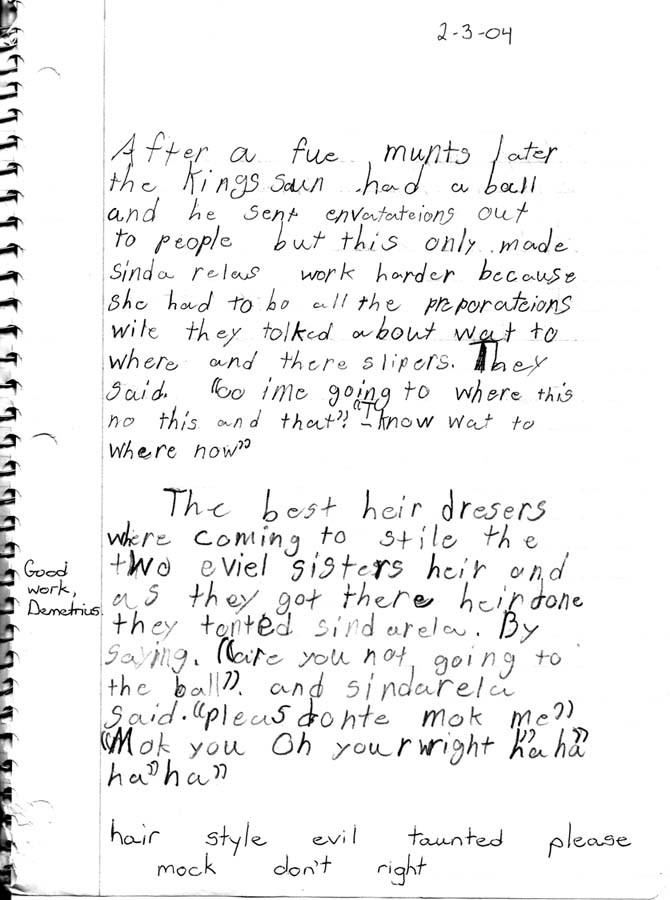 2-3-04
After a fue munts later
the Kings saun had a ball
and he sent envatateions out
to people but this only made
sinda relas work harder because
she had to bo all the preporateions
wile they tolked about wat to
where and there slipers. They
said. “oo ime going to where this
no this and that”! “I know wat to
where now”
The best heir dresers
where coming to stile the
two eviel sisters heir and
as they got there heir done
they tonted sindarela. By
saying. “are you not going to
the ball”. and sindarela
said. “pleas donte mok me”
“Mok you Oh your wright ha ha”
ha” ha”
Good
work,
Demetrius.
hair style evil taunted please
mock don't right